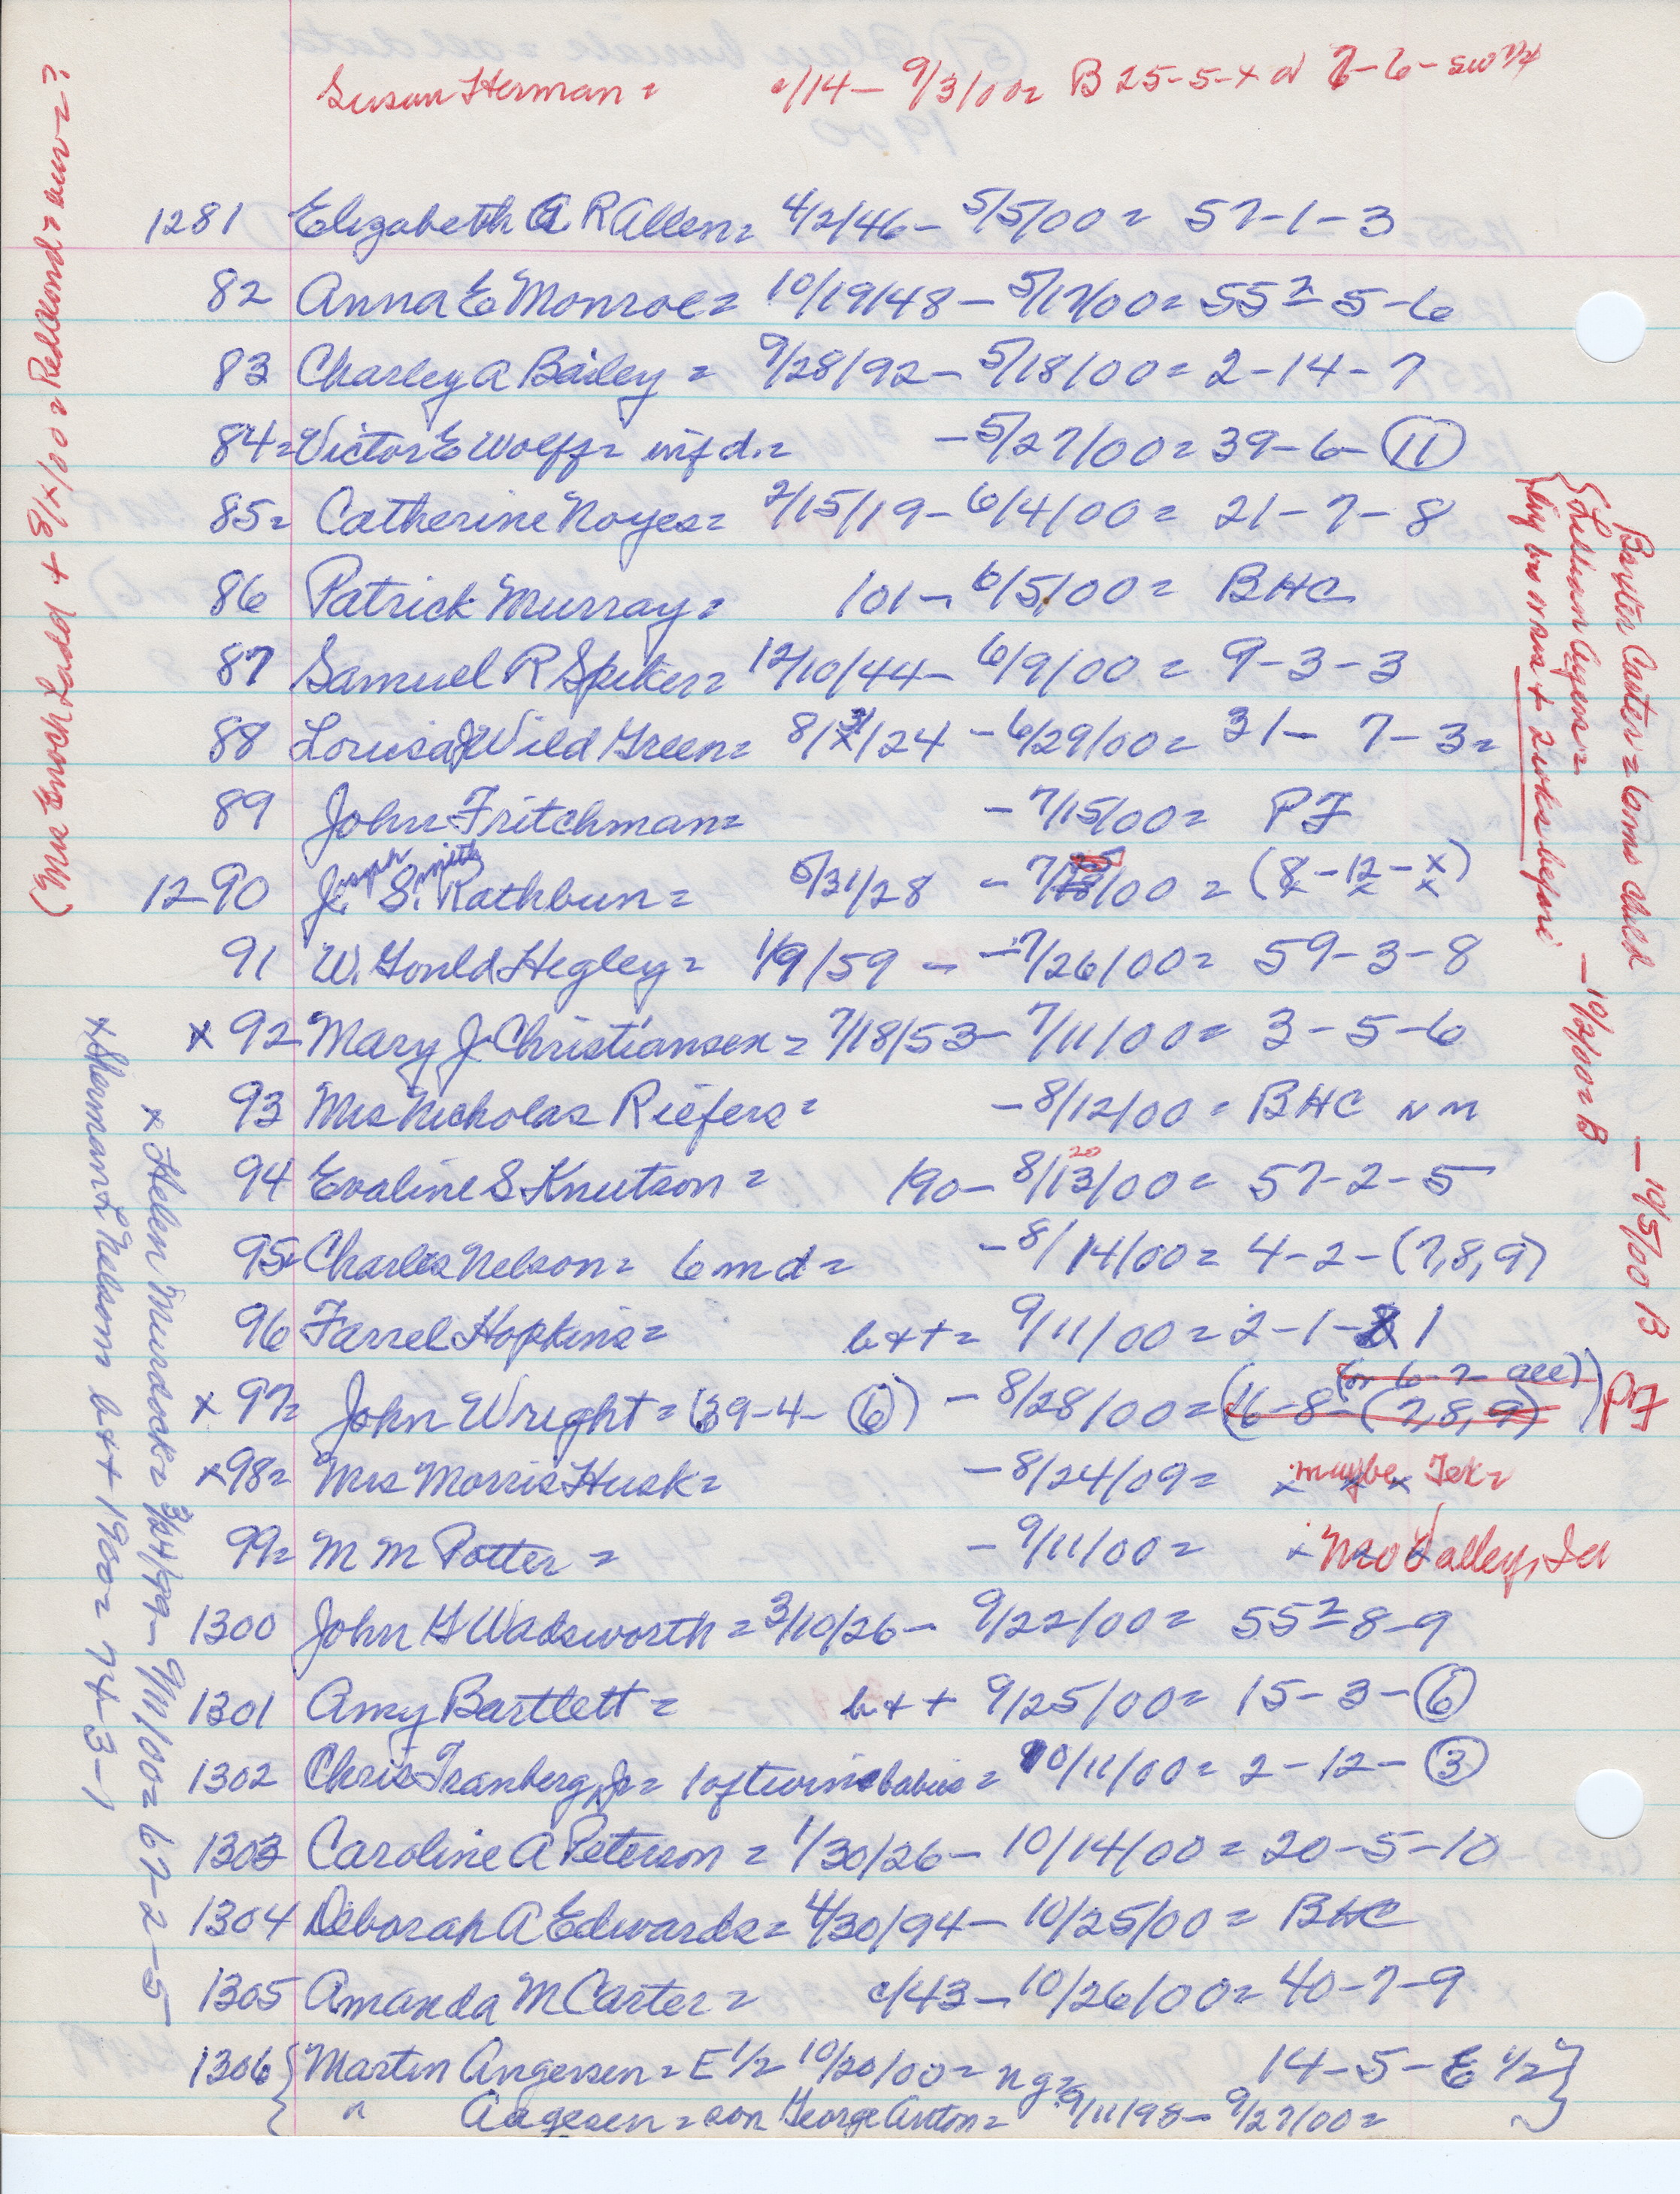 Susan Herman = c/14 - 9/3/00 = B 25-5-x or 7-6-SW 1/4
1281 Elizabeth A R Allen = 4/2/46 - 5/5/00 = 57-1-3
82 Anna E Monroe = 10/19/48 - 5/17/00 = 55 2 = 5-6
83 Charley A Bailey = 9/28/92 - 5/18/00 = 2-14-7
84 = Victor E Wolff = inf d. = - 5/27/00 = 39-6-(11)
85 = Catherine Noyes = 2/15/19 - 6/4/00 = 21-7-8
86 Patrick Murray = 101 - 6/5/00 = BHC
87 Samuel R Spiker = 12/10/44 - 6/9/00 = 9-3-3
88 Louisa J Wild Green = 8/31/24 - 6/29/00 = 31-7-3 =
89 John Fritchman = - 7/15/00 = PF
1290 Joseph Smith Rathbun = 5/31/28 - 7/25/00 = (8-12-x)
x x x
91 W. Gould Hegley = 1/9/59 - - 7/26/00 = 59-3-8
x 92 Mary J. Christiansen = 7/18/53 - 7/11/00 = 3-5-6
93 Mrs Nicholas Riefers = - 8/12/00 = BHC N M
94 Evaline S Knutson = 190 - 8/13/00 = 57-2-5
20
95 Charles Nelson = 6 m d = - 8/14/00 = 4-2-(7,8,9)
96 Farrel Hopkins = b + + = 9/11/00 = 2-1-1
x 97 = John Wright = (39-4-(6)) - 8/28/00 = (16-8-(7,8,9) (or 6-7- all)) PF
x 98 = Mrs Morris Husk = - 8/24/09 = maybe Tek =
99 = M M Potter = - 9/11/00 = x Mo Valley, Ia
1300 John G Wadsworth = 3/10/26 - 9/22/00 = 55 2 = 8-9
1301 Amy Bartlett = b + + 9/25/00 = 15-3-(6)
1302 Chris Tranberg, Jr = 1 of twin babies = 10/11/00 = 2-12-(3)
1303 Caroline A Peterson = 1/30/26 - 10/14/00 = 20-5-10
1304 Deborah A Edwards = 4/30/94 - 10/25/00 = BHC
1305 Amanda M Carter = c/43 - 10/26/00 = 40-7-9
1306 { Martin Angersen = E 1/2 10/20/00 = ng = 14-5-E 1/2 }
{ " Aagesen = son George Anton = 9/11/98 - 9/27/00 = }
(Mrs Enoch Ladd + 8/x/00 = Redland =
x Helen Murdock = 3/24/99 - 9/11/00 = 67-2-5
x Sherman L Nelson b + + 1900 = 74-3-1
Baxter Carter = 6 mos child - 10/5/00 B
{ Lillian Ayers = - 10/2/00 = B
{ big bro was + 2 wks before